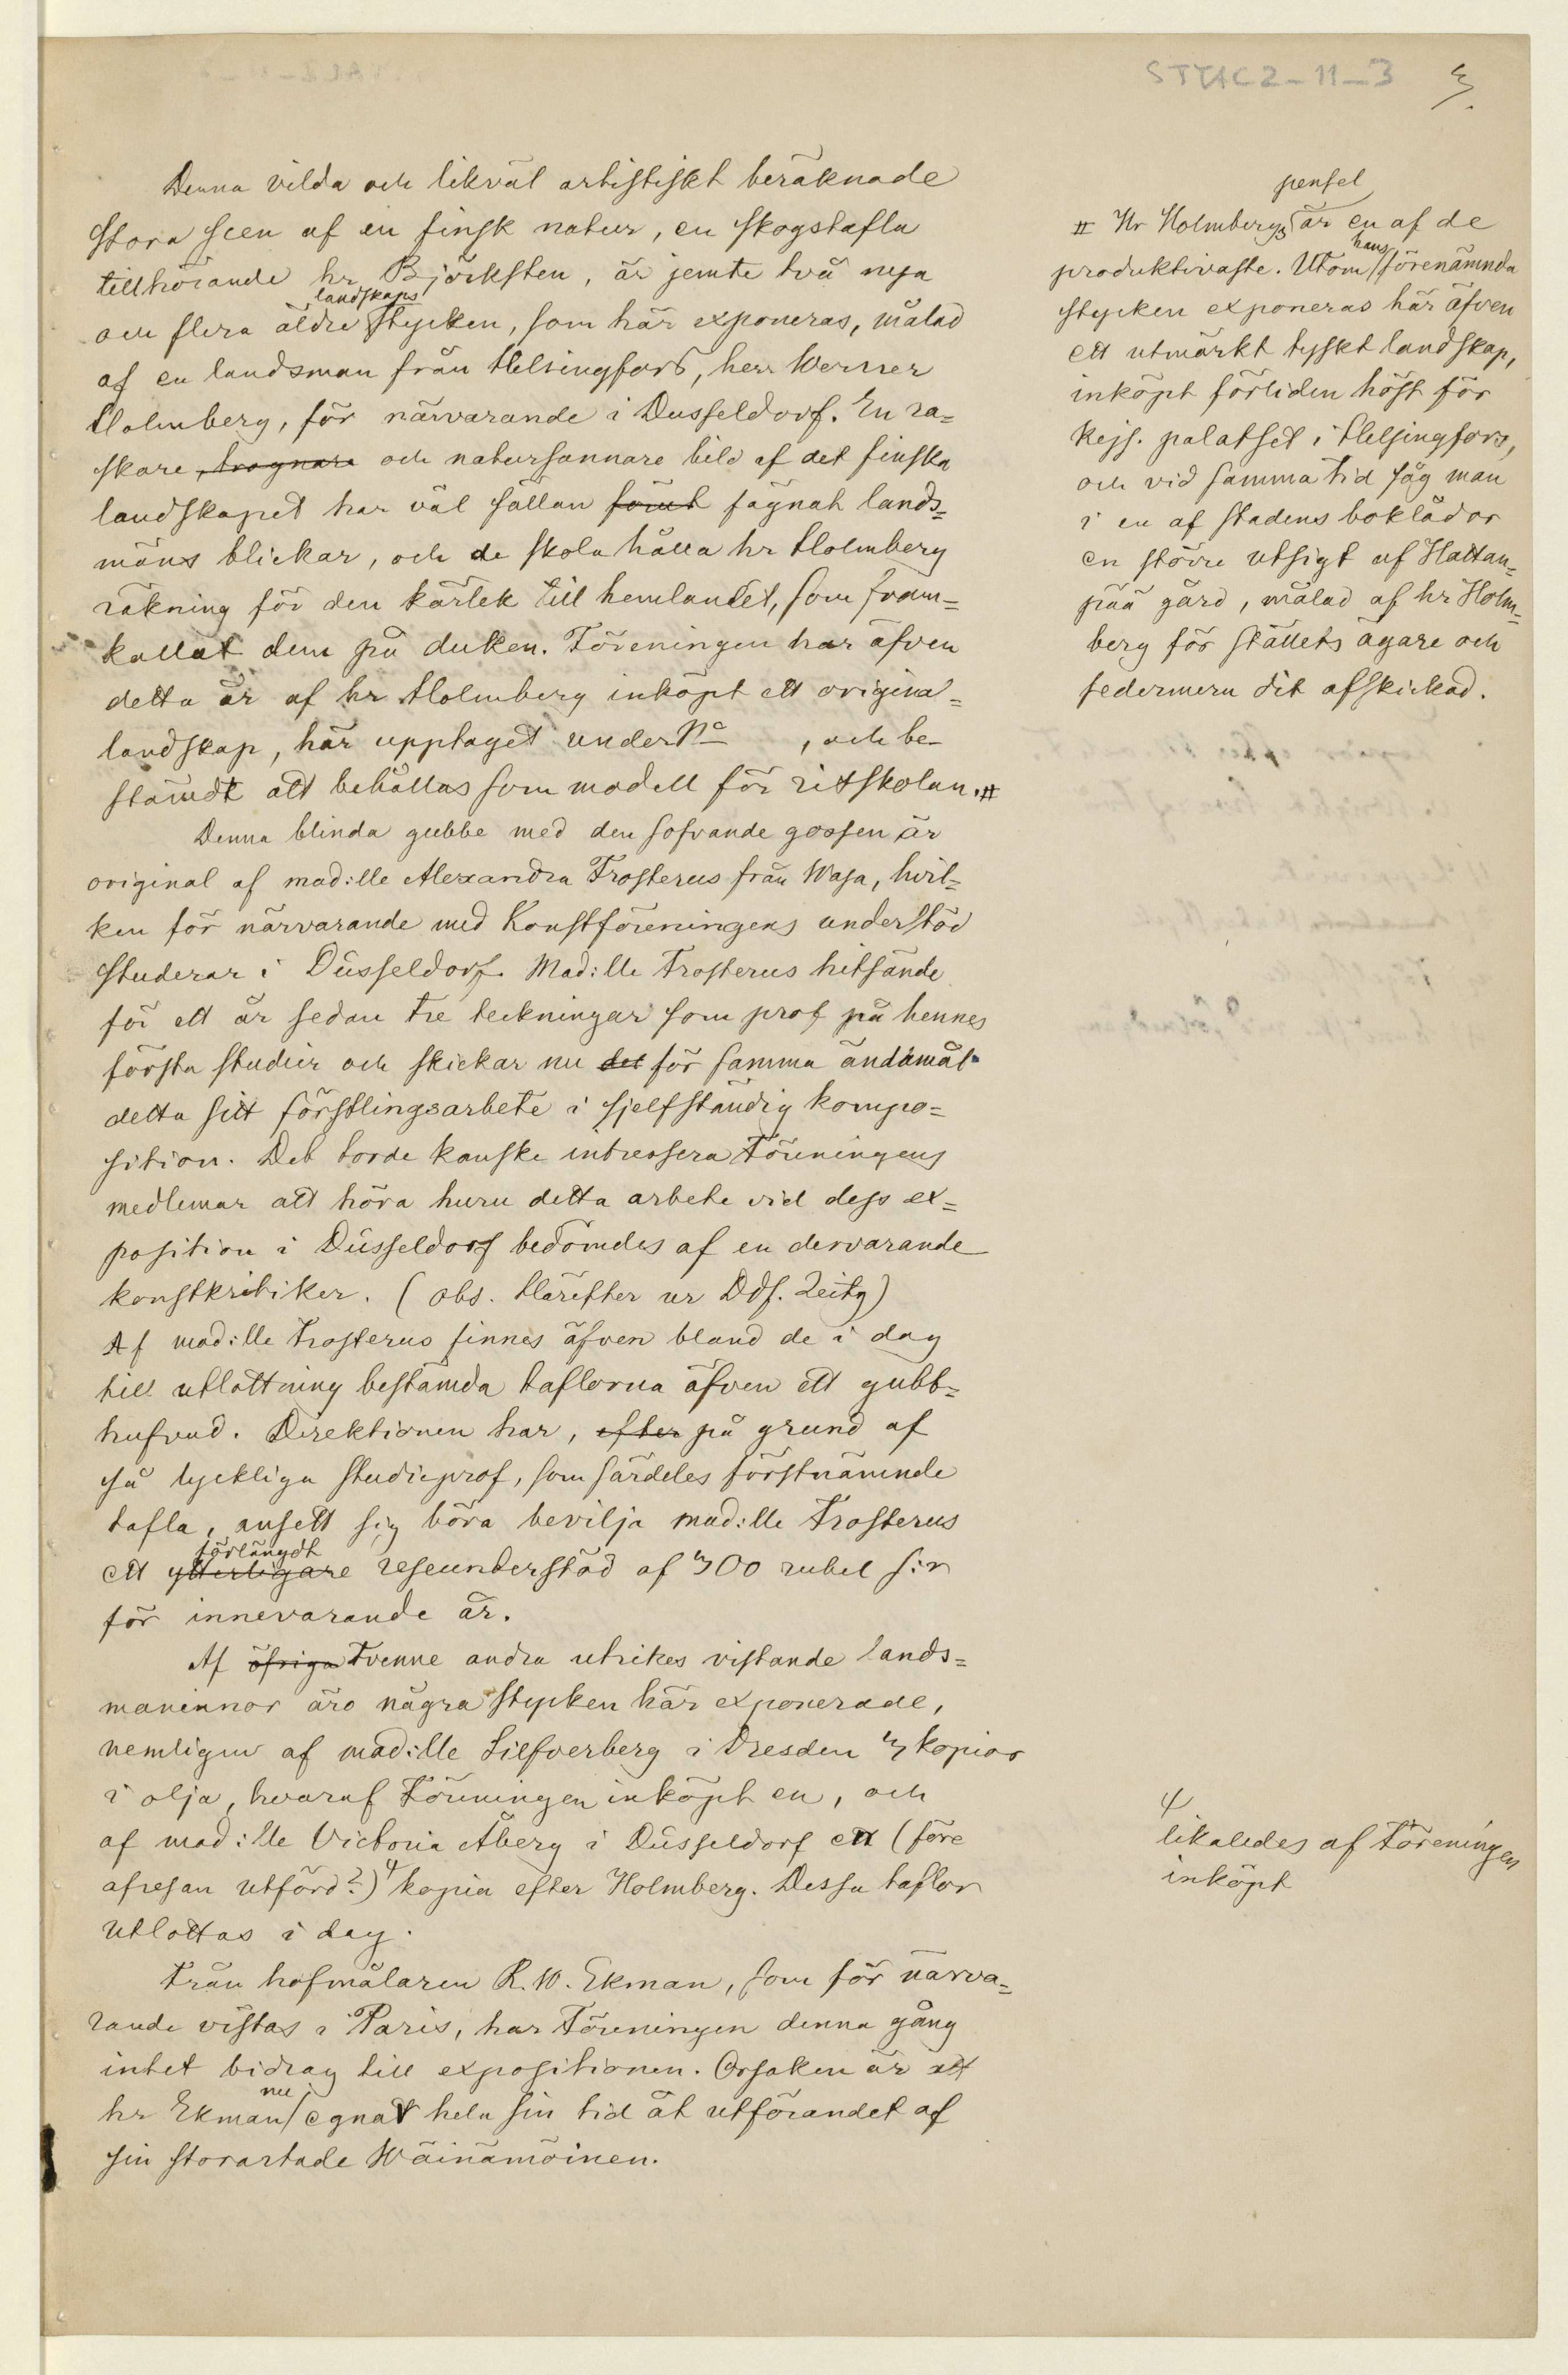 STYAC2-11-3
3.
Denna vilda och likväl artistiskt beräknade
stora scen af en finsk natur, en skogstafla
tillhörande hr Björksten, är jemte två nya
landskaps
och flera äldre stycken, som här exponeras, målad
af en landsman från Helsingfors, herr Werner
Holmberg, för närvarande i Dusseldorf. En ra=
skare, trognare och natursannare bild af det finska
landskapet har väl sällan förut fägnat lands=
mäns blickar, och de skola hålla hr Holmberg
räkning för den kärlek till hemlandet, som fram=
kallat dem på duken. Föreningen har äfven
detta år af hr Holmberg inköpt ett original=
landskap, här upptaget under No , och be-
stämdt att behållas som modell för ritskolan. #
Denna blinda gubbe med den sofvande gossen är
original af mad:lle Alexandra Frosterus från Wasa, hvil=
ken för närvarande med Konstföreningens understöd
studerar i Düsseldorf. Mad:lle Frosterus hitsände
för ett år sedan tre teckningar som prof på hennes
första studier och skickar nu det för samma ändamål
detta sitt förstlingsarbete i sjelfständig kompo=
sition. Det torde kanske intressera Föreningens
medlemar att höra huru detta arbete vid dess ex=
position i Düsseldorf bedömdes af en dervarande
konstkritiker. (obs. Härefter ur Ddf. Zeitg)
Af mad:lle Frosterus finnes äfven bland de i dag
till utlottning bestämda taflorna äfven ett gubb=
hufvud. Direktionen har, efter på grund af
så lyckliga studieprof, som särdeles förstnämnde
tafla, ansett sig böra bevilja mad:lle Frosterus
förlängdt
ett ytterligare reseunderstöd af 300 rubel s:r
för innevarande år.
Af öfriga tvenne andra utrikes vistande lands=
maninnor äro några stycken här exponerade,
nemligen af mad:lle Silfverberg i Dresden 3 kopior
i olja, hvaraf Föreningen inköpt en, och
af mad:lle Victoria Åberg i Düsseldorf en (före
afresan utförd?) ψ kopia efter Holmberg. Dessa taflor
utlottas i dag.
Från hofmålaren R. W. Ekman, som för närva=
rande vistas i Paris, har Föreningen denna gång
intet bidrag till expositionen. Orsaken är att
nu
hr Ekman egnat hela sin tid åt utförandet af
sin storartade Wäinämöinen.
pensel
# Hr Holmbergs är en af de
hans
produktivaste. Utom förenämnda
stycken exponeras här äfven
ett utmärkt tyskt landskap,
inköpt förliden höst för
kejs. palatset i Helsingfors,
och vid samma tid såg man
i en af stadens boklådor
en större utsigt af Hattan=
pää gård, målad af hr Holm=
berg för ställets ägare och
sedermera dit afskickad.
ψ
likaledes af Föreningen
inköpt